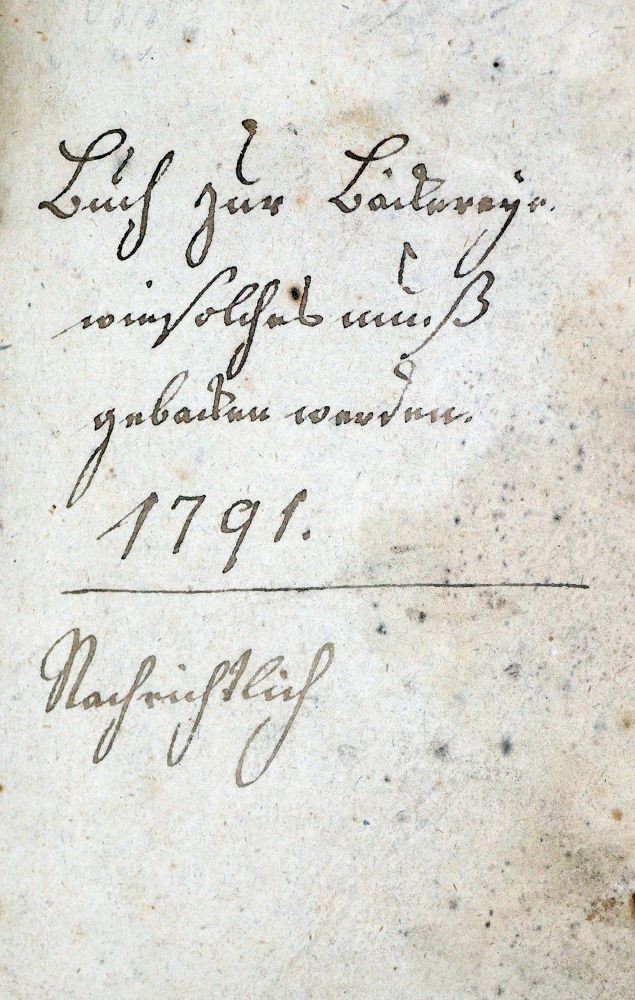 Buch zur Bäckereye.
wie solches muß
gebacken werden.
1791.
Nachrichtlich